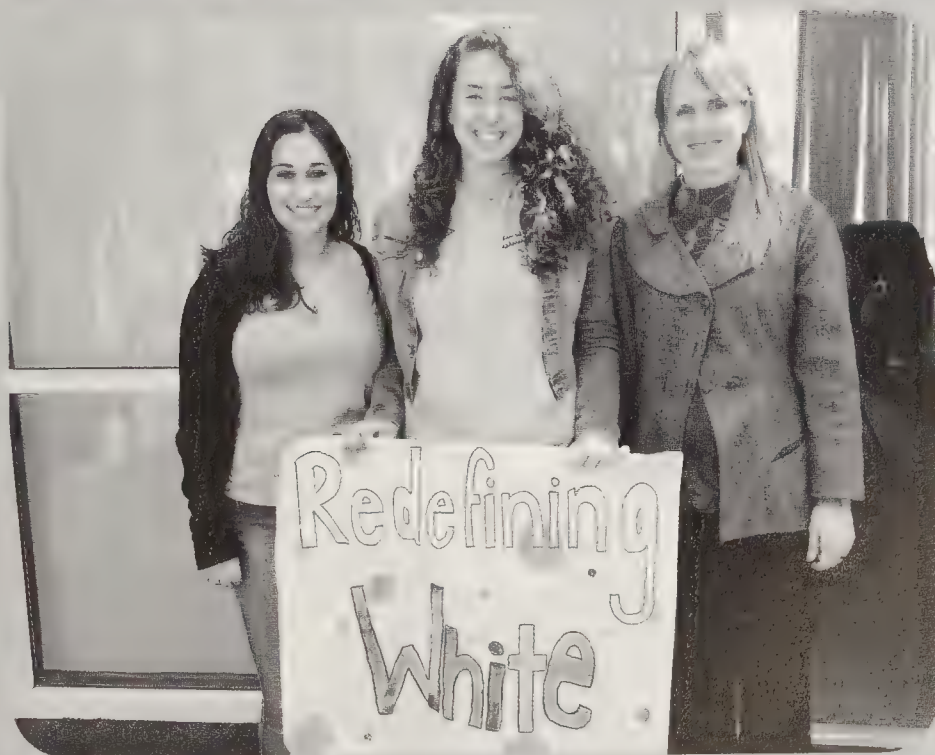 Redefining
White